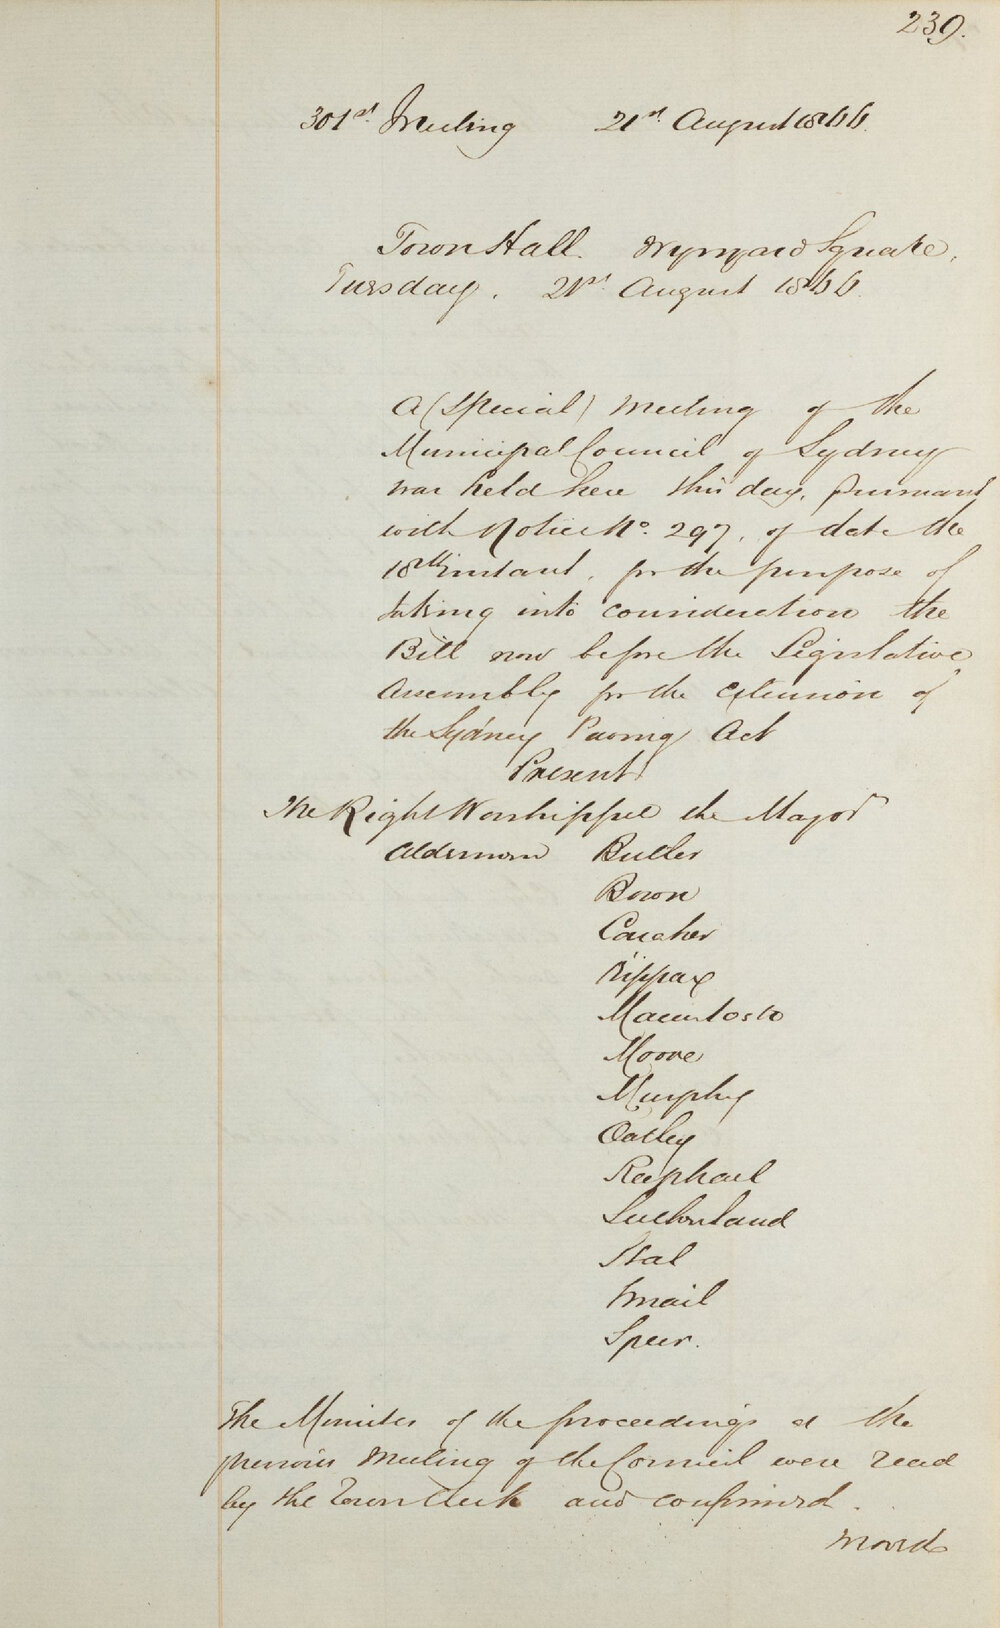 239.
301st. Meeting 21st. August 1866.
Town Hall. Wynyard Square,
Tuesday. 21st. August 1866.
A (Special) Meeting of the
Municipal Council of Sydney
was held here this day, pursuant
with Notice No. 297, of date the
18th instant, for the purpose of
taking into consideration the
Bill now before the Legislative
Assembly for the extension of
the Sydney Paving Act
Present
The Right Worshipful the Mayor
Aldermen Butler
Bown
Caraher
Kippax
Macintosh
Moore
Murphy
Oatley
Raphael
Sutherland
Smail
Speer.
The Minutes of the proceedings at the
previous Meeting of the Council were read
by the Town Clerk and confirmed.
Moved